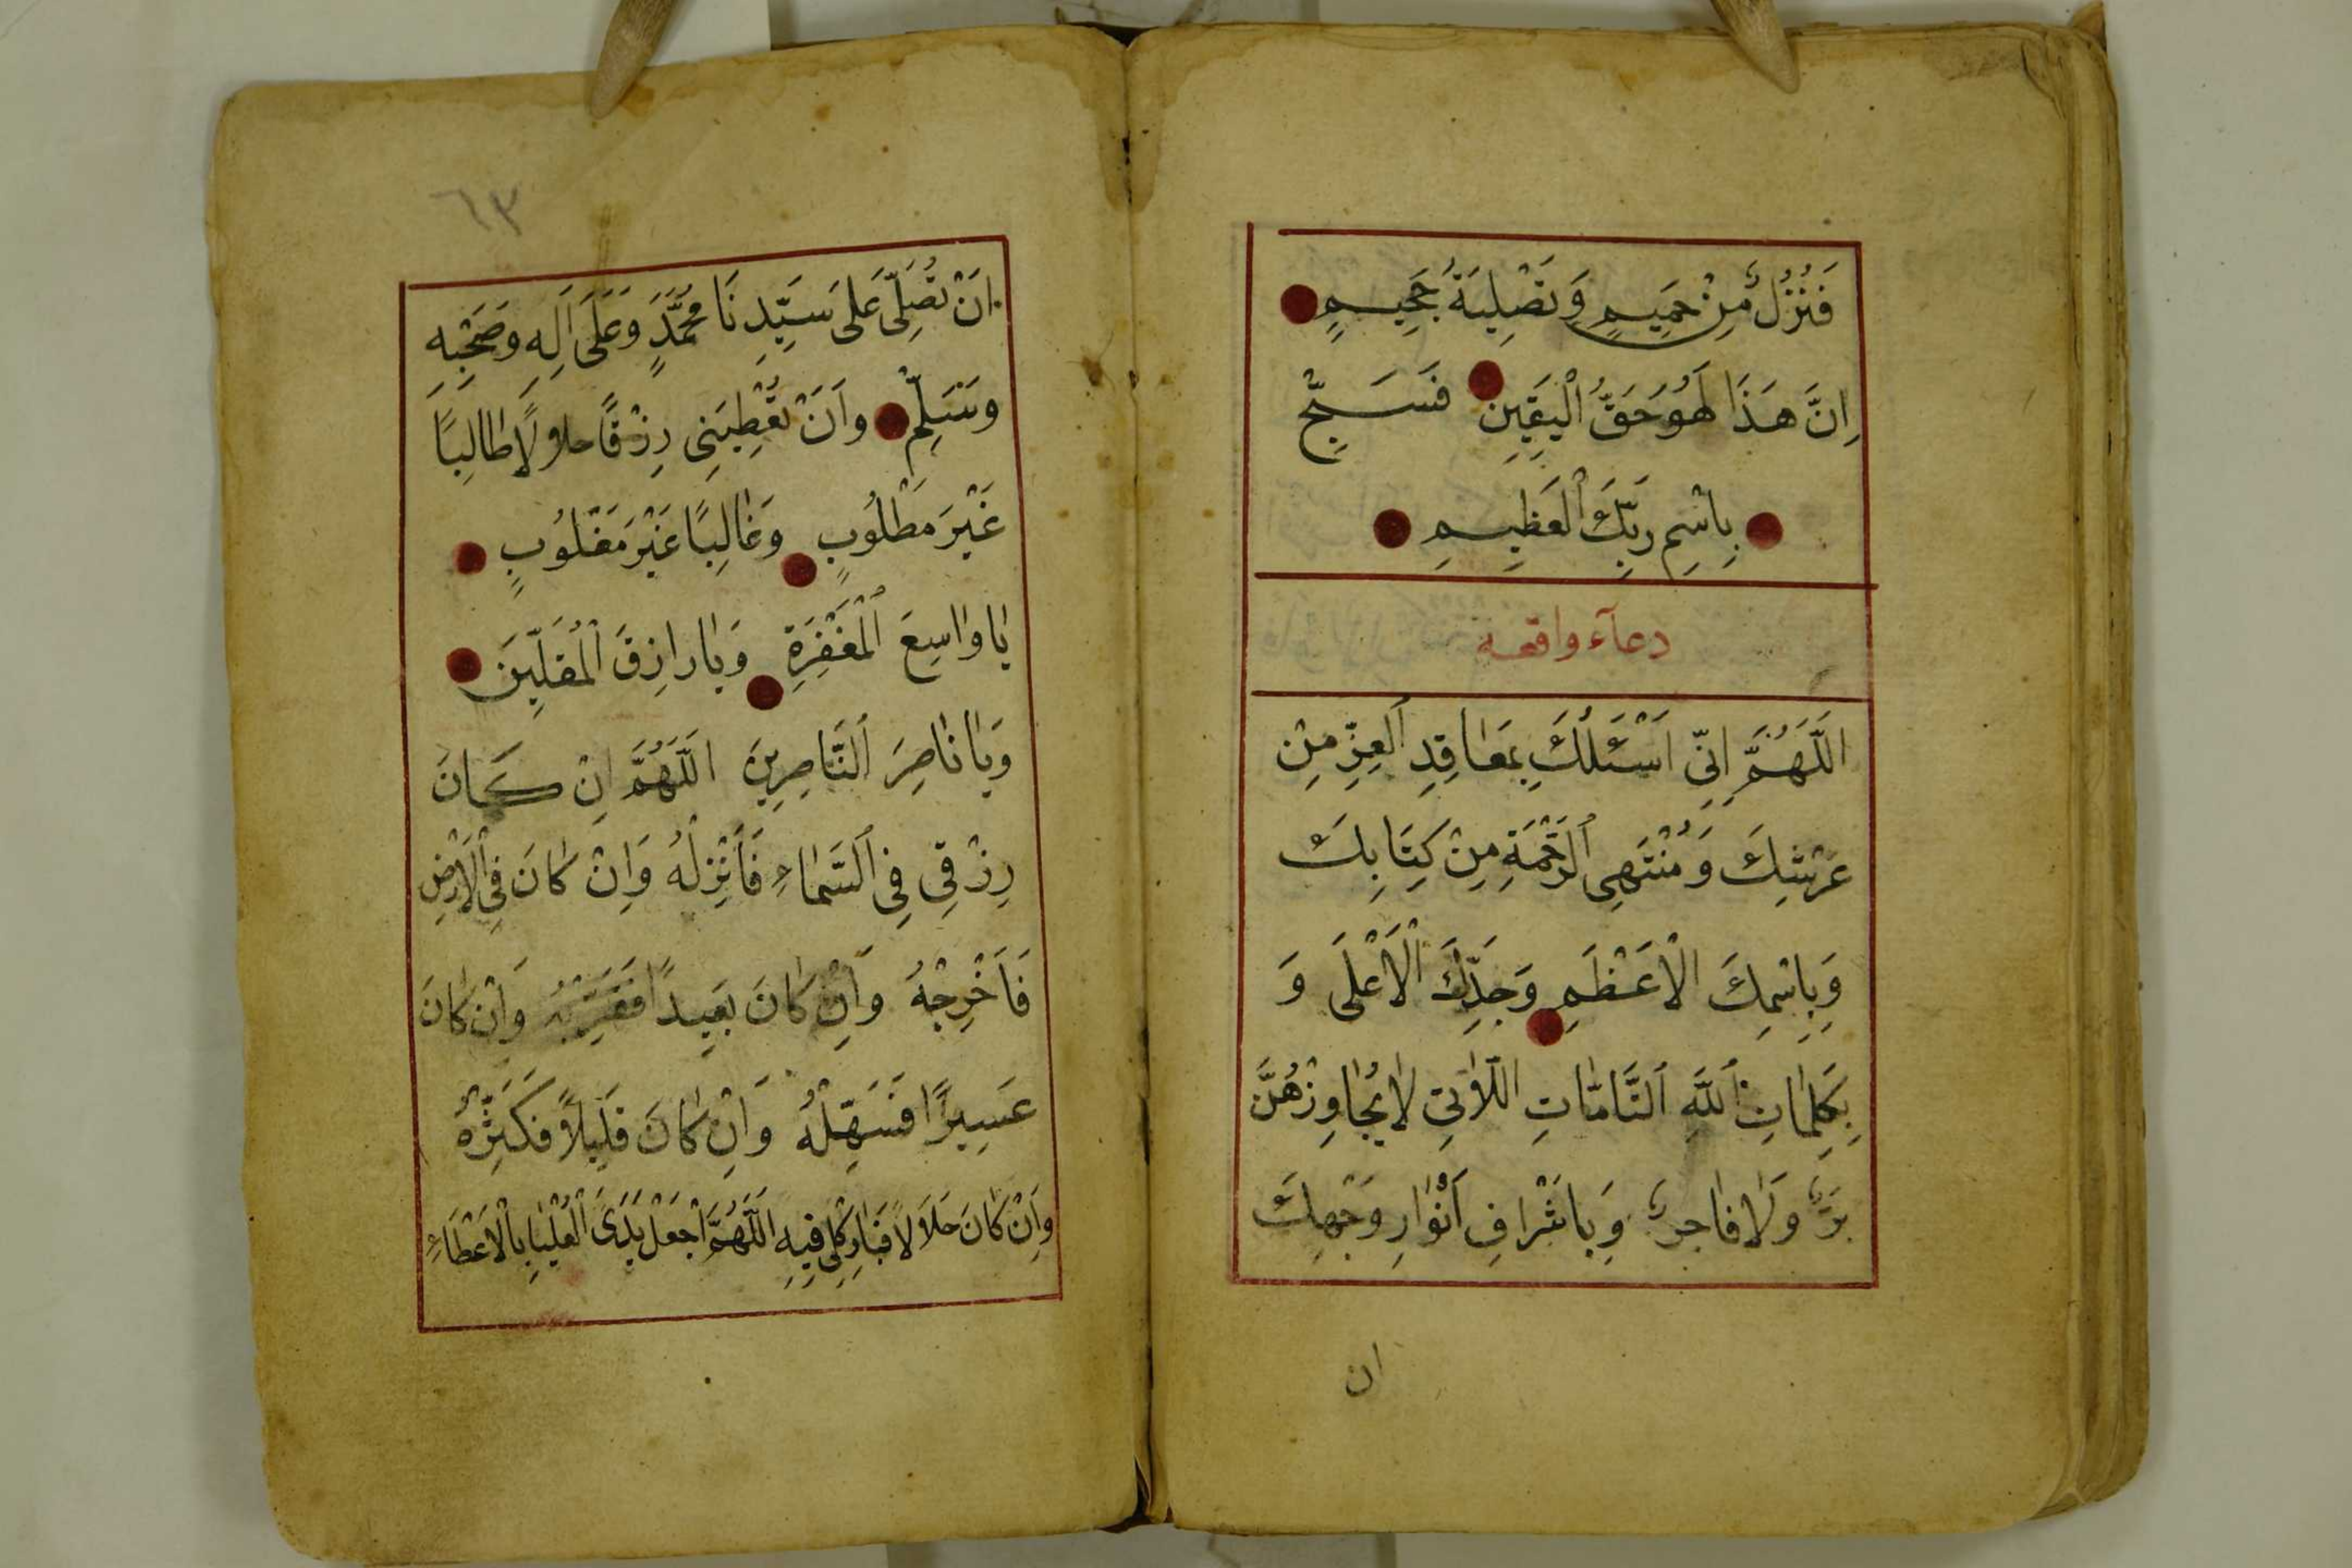 فَنُزُلٌ مِنْ حَمِيمٍ وَتَصْلِيَةُ جَحِيمٍ
اِنَّ هَذَا لَهُوَ حَقُّ الْيَقِينِ فَسَبِّحْ
بِاسْمِ رَبِّكَ الْعَظِيمِ
دعآء واقعة
اَللَّهُمَّ اِنِّي اَسْئَلُكَ بِمَعَاقِدِ الْعِزِّ مِنْ
عَرْشِكَ وَمُنْتَهِى الرَّحْمَةِ مِنْ كِتَابِكَ
وَبِاسْمِكَ الْاَعْظَمِ وَجَدِّكَ الْاَعْلَى وَ
بِكَلِمَاتِ اللَّهِ التَّامَّاتِ اللَّاتِي لَا يُجَاوِزْهُنَّ
بَرٌّ وَلَا فَاجِرٌ وَبِاشْرَافِ اَنْوَارِ وَجْهِكَ
ان
٦٣
اَنْ تُصَلِّى عَلَى سَيِّدِنَا مُحَمَّدٍ وَعَلَى آلِهِ وَصَحْبِهِ
وَسَلِّمْ وَاَنْ تُعْطِيَنِى رِزْقًا حلاولًا طَالِبًا
غَيْرَ مَطْلُوبٍ وَغَالِبًا غَيْرَ مَغْلُوبٍ
يَا وَاسِعَ الْمَغْفِرَةِ وَيَا رَازِقَ الْمُقِلِّينَ
وَيَا نَاصِرَ النَّاصِرِينَ اَللَّهُمَّ اِنْ كَانَ
رِزْقِي فِي السَّمَاءِ فَاَنْزِلْهُ وَاِنْ كَانَ فِي الْاَرْضِ
فَاَخْرِجْهُ وَاِنْ كَانَ بَعِيدًا فَقَرِّبْهُ وَاِنْ كَانَ
عَسِيرًا فَسَهِّلْهُ وَاِنْ كَانَ قَلِيلًا فَكَثِّرْهُ
وَاِنْ كَانَ حَلَالًا فَبَارِكْلِى فِيهِ اَللَّهُمَّ اجْعَلْ يَدَىَ الْعُلْيَا بِالْاَعْطَاءِ